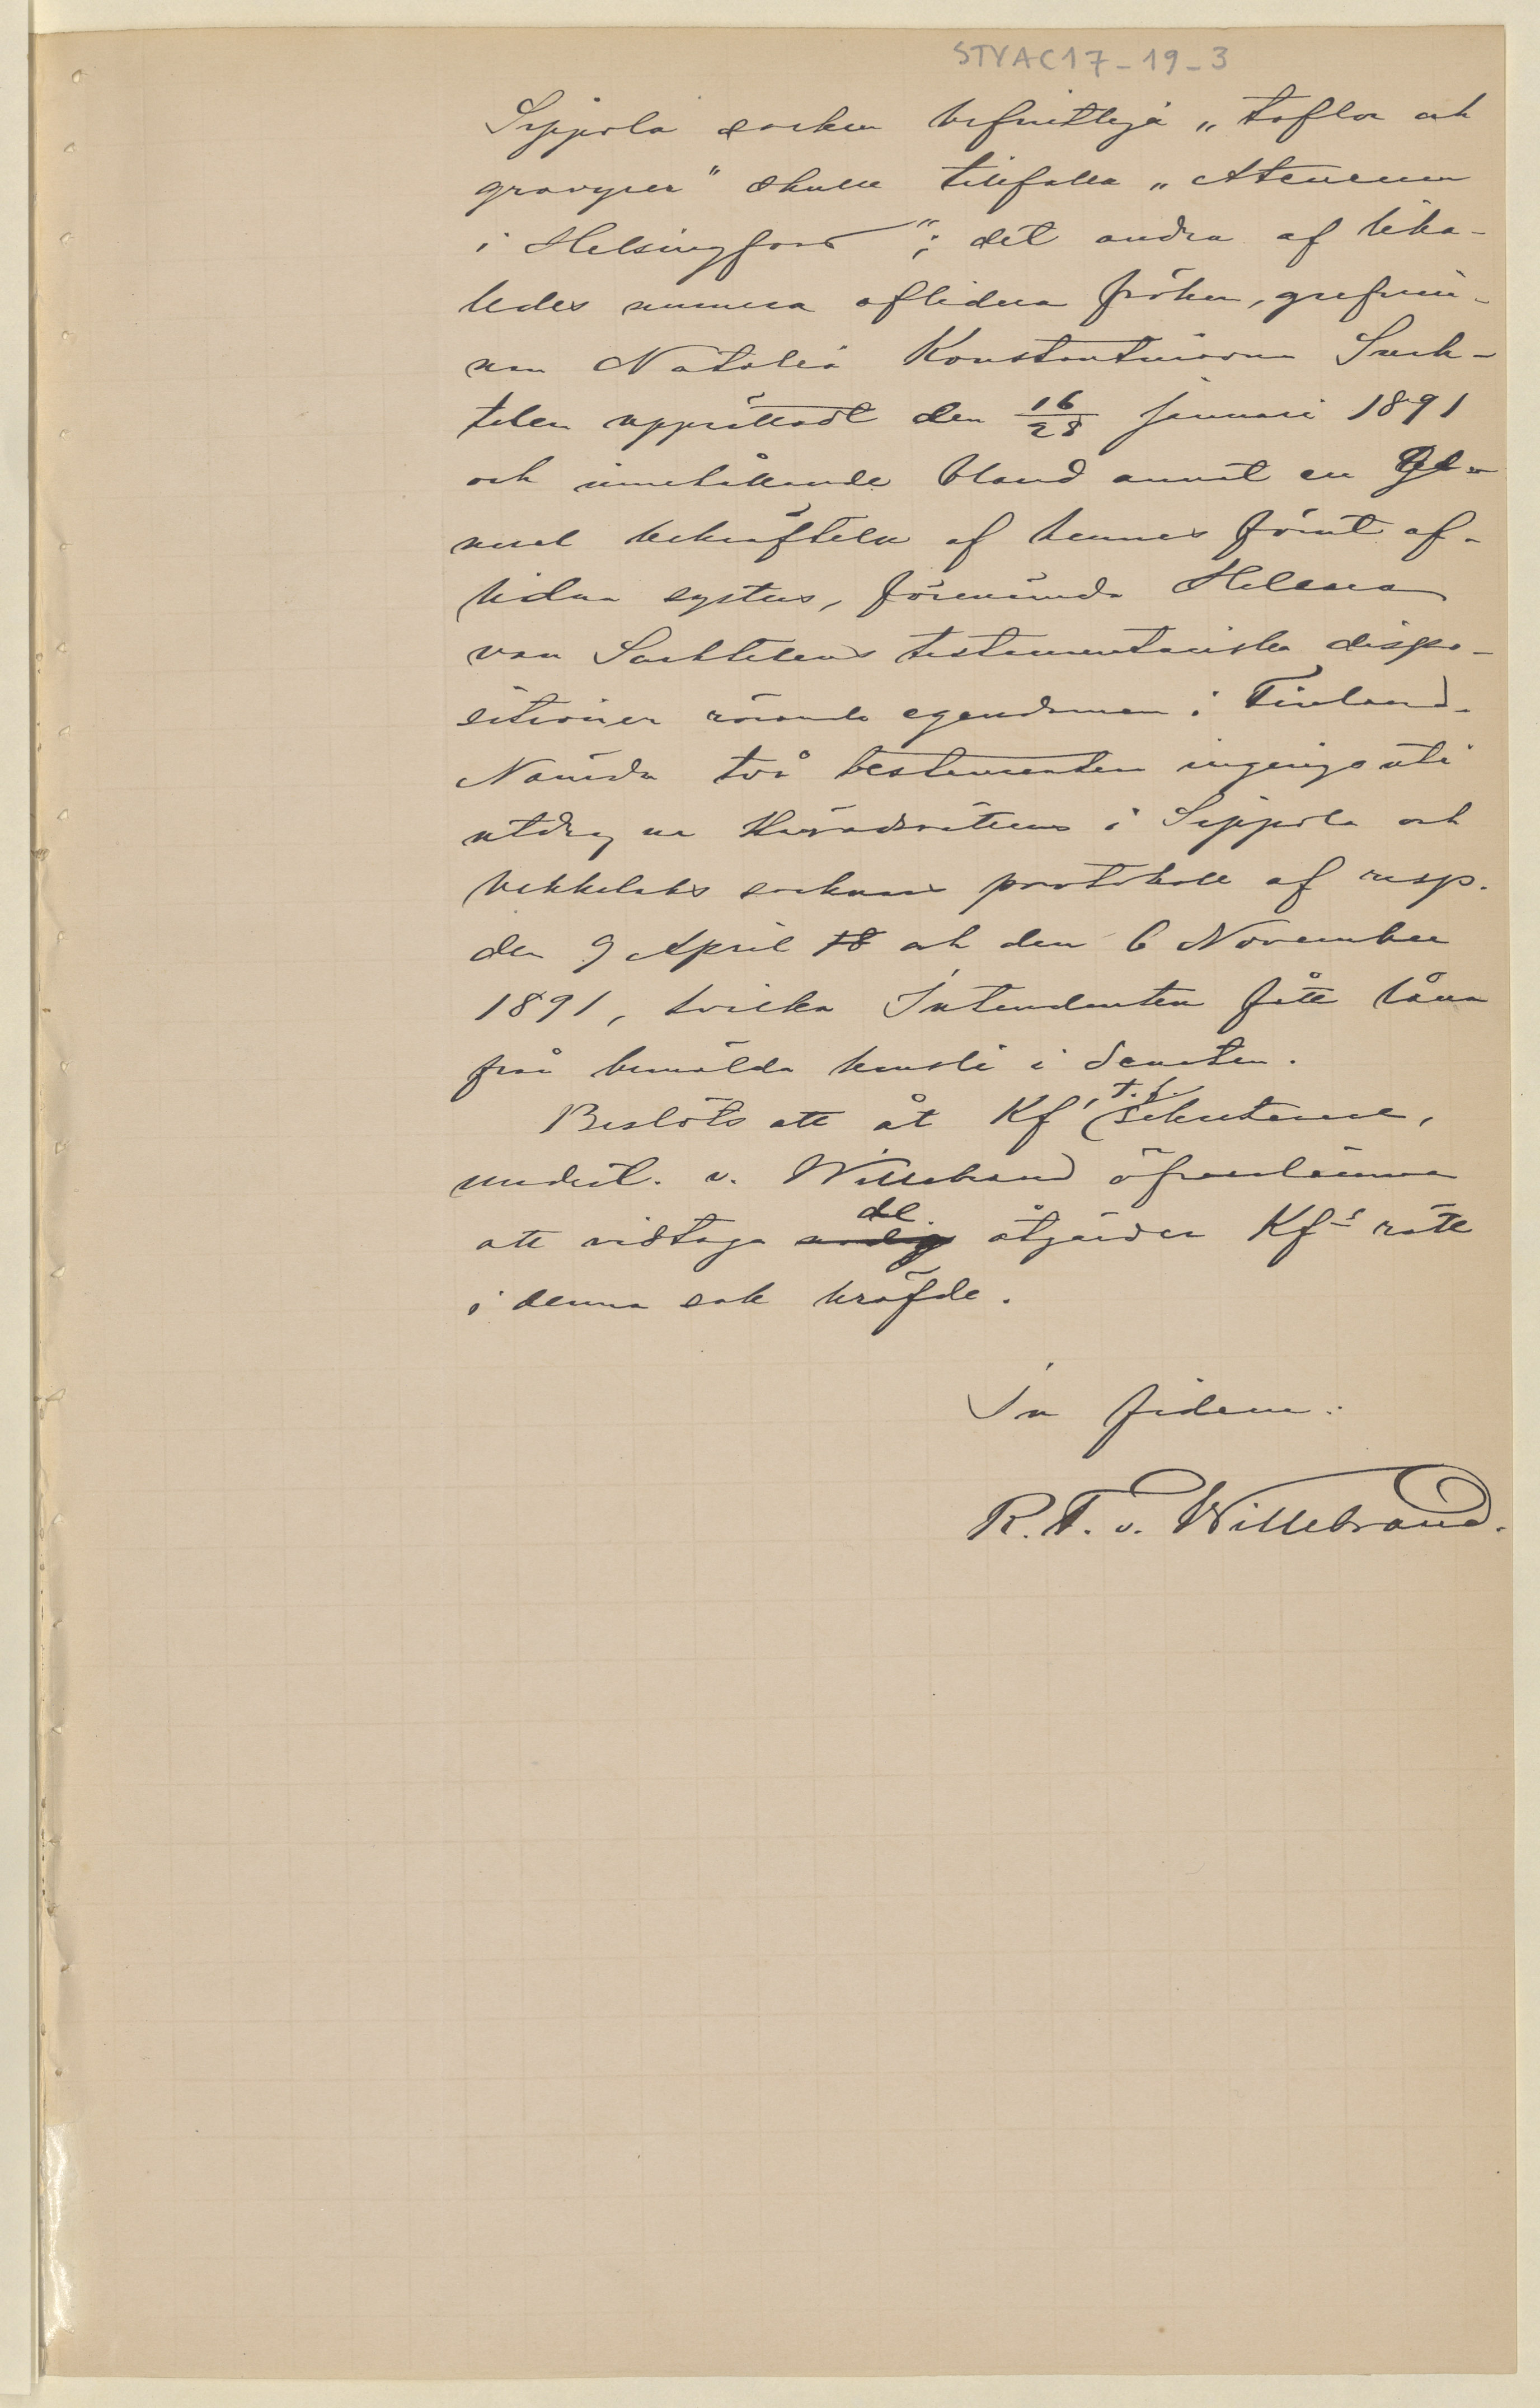 STYAC17-19-3
Sippola socken befintliga „taflor och
gravyrer" skulle tillfalla „Ateneum
i Helsingfors"; det andra af lika-
ledes numera aflidna fröken, grefvin-
nan Natalia Konstantinovna Such-
telen upprättadt den 16/28 januari 1891
och innehållande bland annat en
bekräftelse af hennes förut af-
lidna systers, förenämnda Helena
van Suchtelens testamentariska dispo-
sitioner rörande egendomen i Finland.
Nämda två testamenten ingingo uti
utdrag ur Häradsrättens i Sippola och
Vekkelaks socknars protokoll af resp.
den 9 April 18 och den 6 November
1891, hvilka Intendenten fått låna
från bemälda kansli i Senaten.
Beslöts att åt Kf, t.f. sekreterare,
undert. v. Willebrand öfverlämna
att vidtaga de åtgärder Kfs rätt
i denna sak kräfde.
In fidem:
R. F. v. Willebrand.